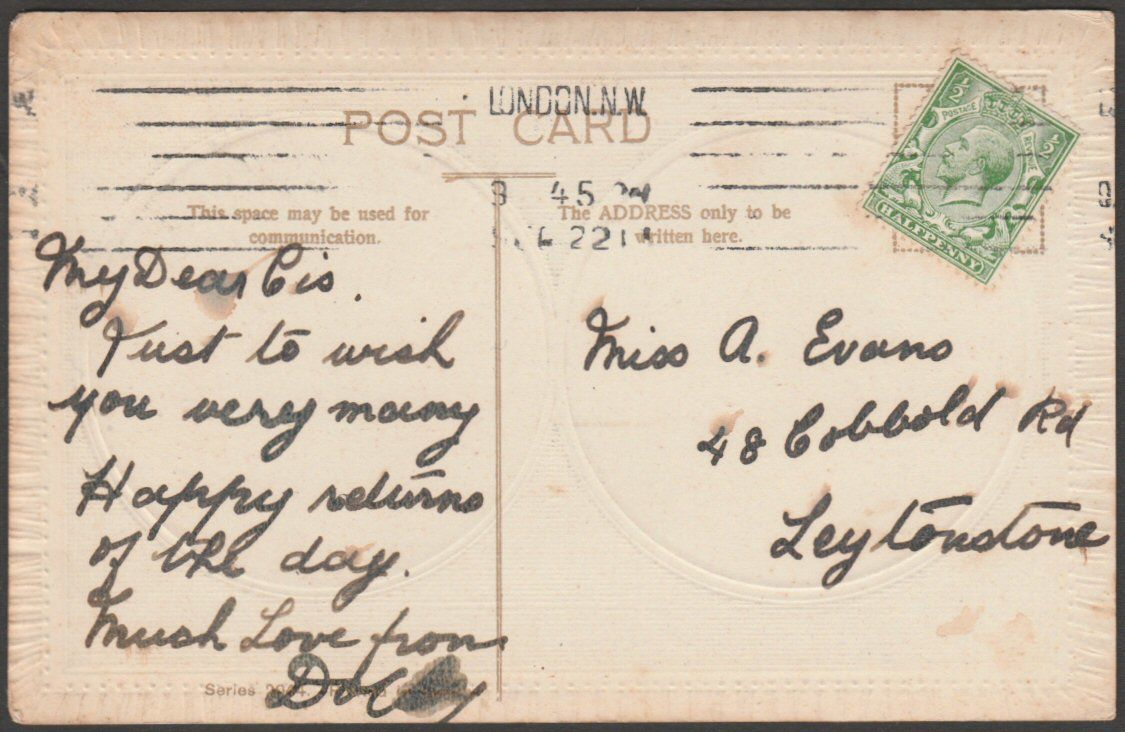 LONDON. N.W.
POST CARD
45
22
This space may be used for
communication.
The ADDRESS only to be
written here.
½
½
POSTAGE
HALFPENNY
My Dear Cis.
Just to wish
you very many
Happy returns
of the day.
Much Love from
Dolly
Series
Miss A. Evans
48 Cobbold Rd
Leytonstone